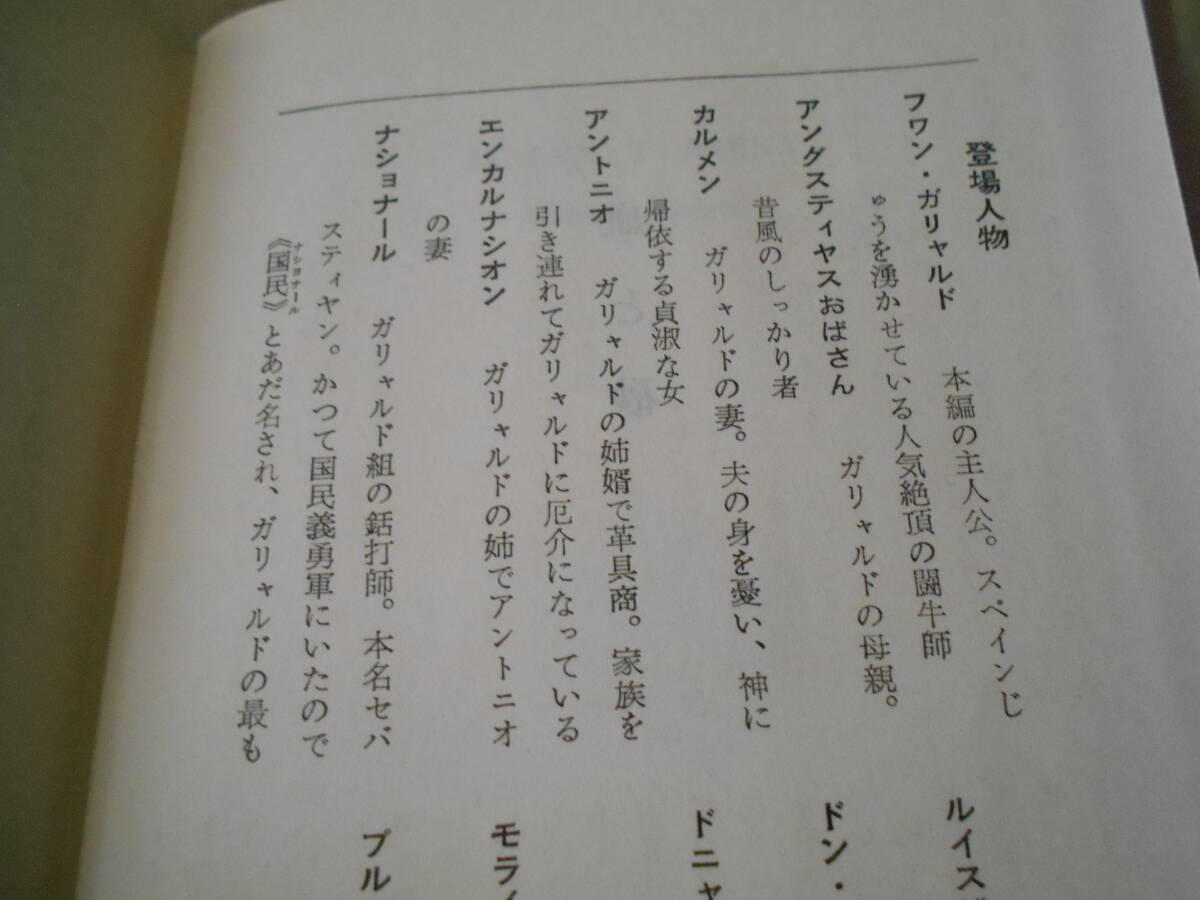 登場人物
フワン・ガリャルド　本編の主人公。スペインじ
ゅうを湧かせている人気絶頂の闘牛師
アングスティヤスおばさん　ガリャルドの母親。
昔風のしっかり者
カルメン　ガリャルドの妻。夫の身を憂い、神に
帰依する貞淑な女
アントニオ　ガリャルドの姉婿で革具商。家族を
引き連れてガリャルドに厄介になっている
エンカルナシオン　ガリャルドの姉でアントニオ
の妻
ナショナール　ガリャルド組の銛打師。本名セバ
スティヤン。かつて国民義勇軍にいたので
《国民》とあだ名され、ガリャルドの最も
ナショナール
ルイス
ドン・
ドニャ
モラ
プル